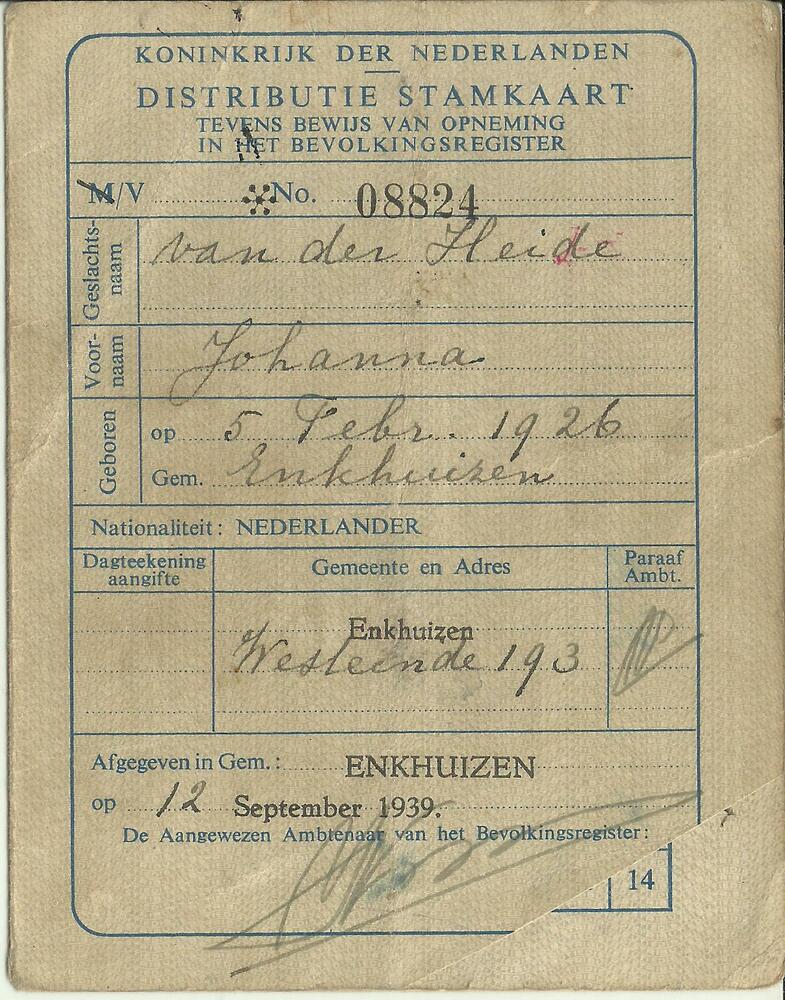 KONINKRIJK DER NEDERLANDEN
DISTRIBUTIE STAMKAART
TEVENS BEWIJS VAN OPNEMING
IN HET BEVOLKINGSREGISTER
M/V No. 08824
Geslachts-
naam
van der Heide
Voor-
naam
Johanna
Geboren
op 5 Febr. 1926
Gem. Enkhuizen
Nationaliteit: NEDERLANDER
Dagteekening
aangifte
Gemeente en Adres
Paraaf
Ambt.
Enkhuizen
Westeinde 193
Afgegeven in Gem.: ENKHUIZEN
op 12 September 1939.
De Aangewezen Ambtenaar van het Bevolkingsregister:
14